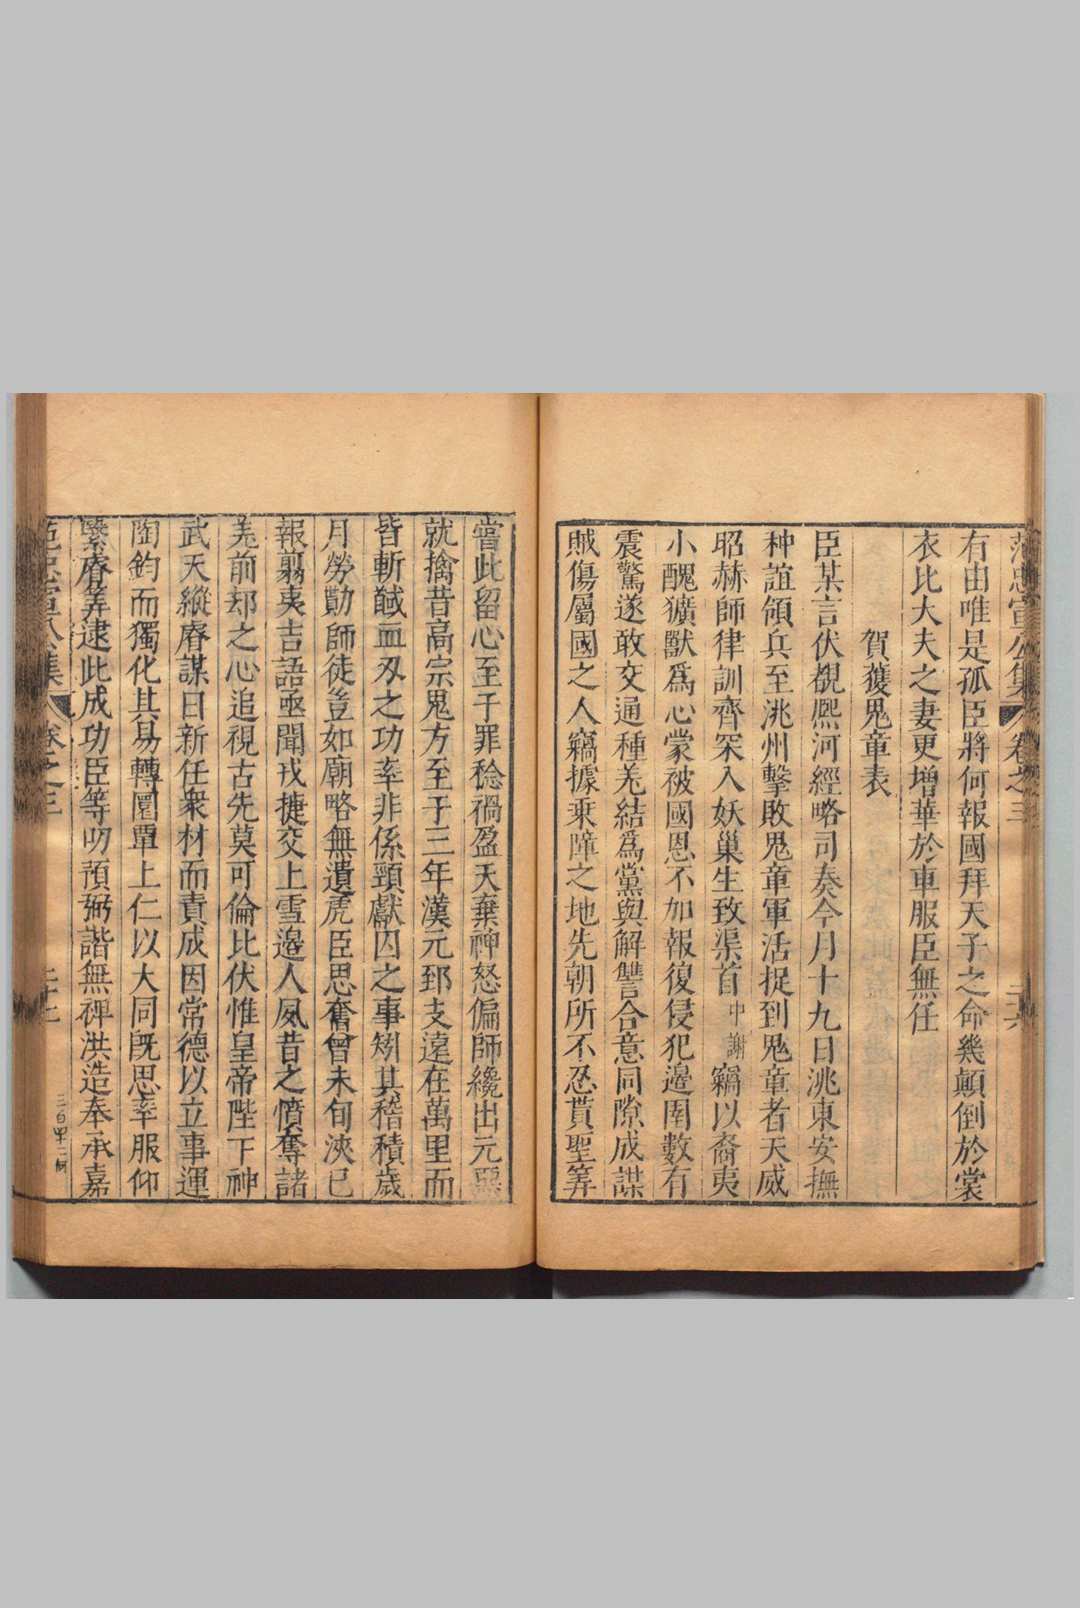 范忠宣公集 卷之三 二十六
有由唯是孤臣將何報國拜天子之命幾顛倒於裳
衣比大夫之妻更增華於車服臣無任
賀獲鬼章表
臣某言伏覩熈河經略司奏今月十九日洮東安撫
种誼領兵至洮州擊敗鬼章軍活捉到鬼章者天威
昭赫師律訓齊罙入妖巢生致渠首中謝竊以裔夷
小醜獷獸爲心蒙被國恩不加報復侵犯邊圉數有
震驚遂敢交通種羌結爲黨與解讐合意同隙成謀
賊傷屬國之人竊據乗障之地先朝所不忍貰聖筭
嘗此留心至于罪稔禍盈天棄神怒偏師纔出元惡
就擒昔高宗鬼方至于三年漢元郅支遠在萬里而
皆斬馘血刄之功率非係頸獻囚之事矧其稽積歲
月勞勩師徒豈如廟略無遺虎臣思奮曾未旬浹已
報翦夷吉語亟聞戎捷交上雪邊人夙昔之憤奪諸
羌前却之心追視古先莫可倫比伏惟皇帝陛下神
武天縱睿謀日新任衆材而責成因常德以立事運
陶鈞而獨化其易轉圜覃上仁以大同旣思率服仰
繄睿筭逮此成功臣等叨預弼諧無裨洪造奉承嘉
范忠宣公集 卷之三 二十七
三百四十二